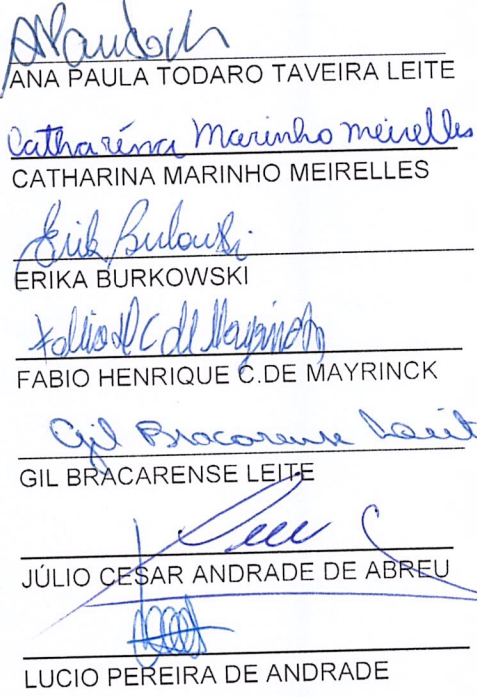 ANA PAULA TODARO TAVEIRA LEITE
Catharina Marinho Meirelles
CATHARINA MARINHO MEIRELLES
Erika Burkowski
ERIKA BURKOWSKI
Fabio H C de Mayrinck
FABIO HENRIQUE C.DE MAYRINCK
Gil Bracarense Leite
GIL BRACARENSE LEITE
JÚLIO CESAR ANDRADE DE ABREU
LUCIO PEREIRA DE ANDRADE